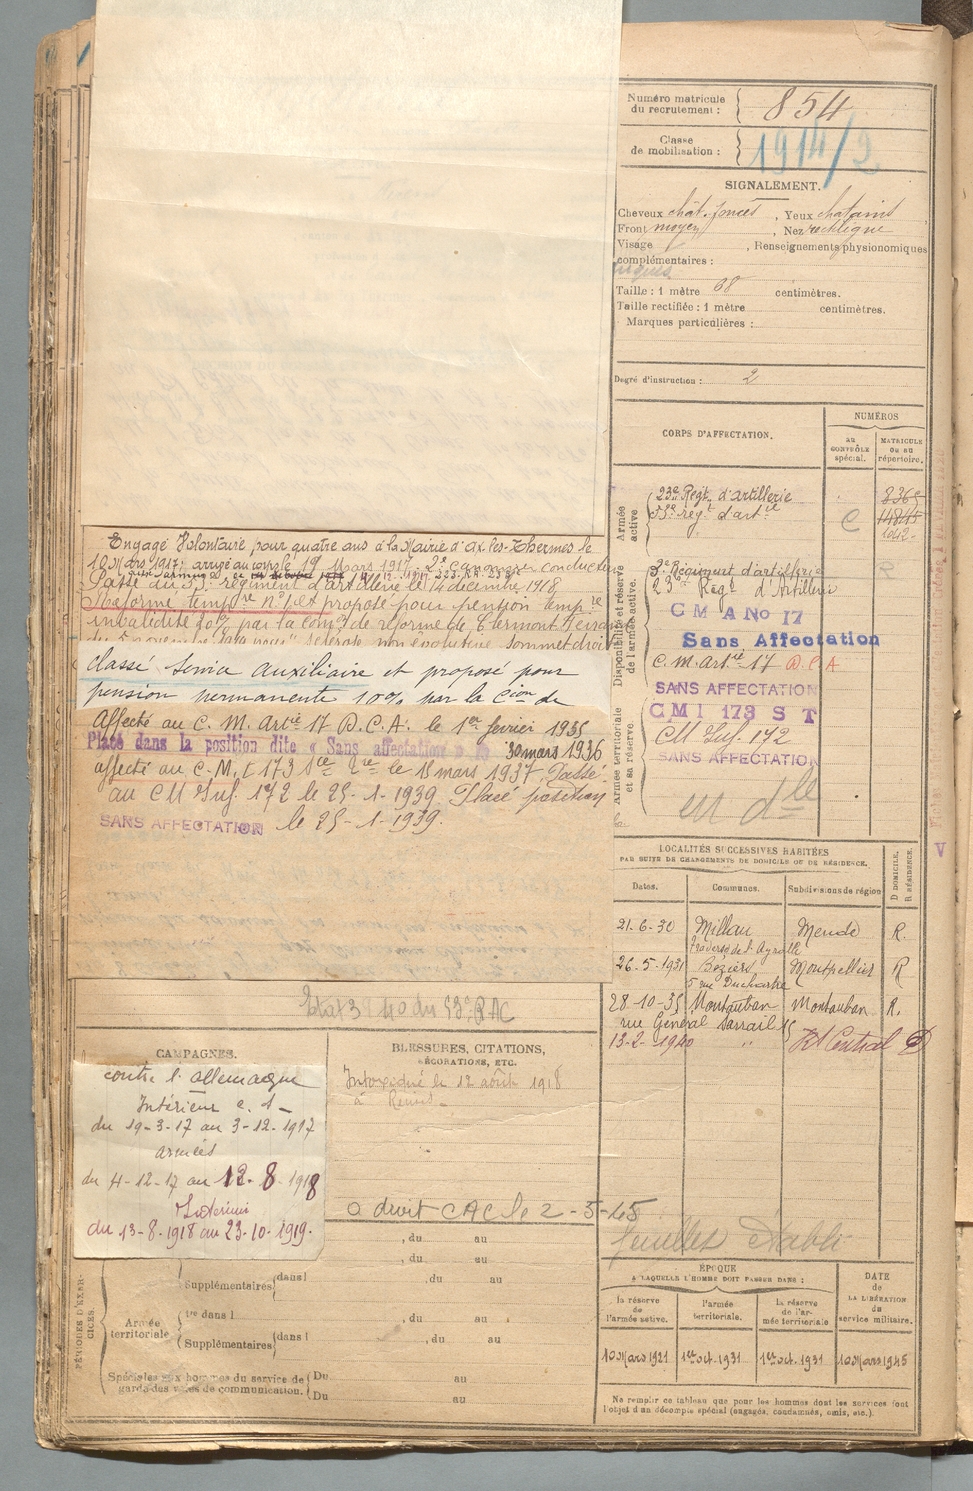 Numéro matricule
du recrutement : 854
Classe
de mobilisation : 1914/2
SIGNALEMENT.
Cheveux chât. foncés , Yeux chatains
Front moyen , Nez rectiligne
Visage , Renseignements physionomiques
complémentaires :
Taille : 1 mètre 68 centimètres.
Taille rectifiée : 1 mètre centimètres.
Marques particulières :
Degré d'instruction : 2
CORPS D'AFFECTATION.
NUMÉROS
au
CONTRÔLE
spécial.
MATRICULE
OU AU
répertoire.
Armée
active
23e Regt d'artillerie 8369
53e reg.t d'art.ie C 14845
1042
Disponibilité et réserve
de l'armée active.
3e Régiment d'artillerie R
23e Régt d'Artillerie
C M A No 17
Sans Affectation
C. m. Art.ie 17 D.C.A
SANS AFFECTATION
Armée territoriale
et sa réserve.
C M I 173 S T
CM Inf. 172
SANS AFFECTATION
Engagé Volontaire pour quatre ans à la Mairie d'Ax-les-Thermes le
10 Mars 1917; arrivé au corps le 19 Mars 1917. 2e canonnier conducteur
Passé du 53e Régiment d'artillerie le 14 décembre 1918
Réformé temp.re n°1 et proposé pour pension temp.re
invalidité 10% par la Com.on de réforme de Clermont Ferrand
du 5 novembre
classé service auxiliaire et proposé pour
pension permanente 10% par la Cion de
Affecté au C. M. Art.ie 17 D.C.A. le 1er fevrier 1935
Placé dans la position dite « Sans affectation » le 30 mars 1936
affecté au C.M.I 173 le 18 mars 1937. Passé
au CM Inf. 172 le 25-1-1939. Placé position
SANS AFFECTATION le 25-1-1939.
LOCALITÉS SUCCESSIVES HABITÉES
PAR SUITE DE CHANGEMENTS DE DOMICILE OU DE RÉSIDENCE.
D DOMICILE,
R RÉSIDENCE.
Dates. Communes. Subdivisions de région
21-6-30 Millau Mende R.
26-5-1931 Béziers Montpellier R
5 rue Duchartre
28-10-35 Montauban Montauban R.
rue Général Sarrail 15
13-2-1940 " Rt Central D
du 53e RAC
CAMPAGNES.
contre l'allemagne
Intérieur c. 1
du 19-3-17 au 3-12-1917
armées
du 4-12-17 au 12-8-1918
Intérieur
du 13-8-1918 au 23-10-1919.
BLESSURES, CITATIONS,
DÉCORATIONS, ETC.
Intoxiqué le 12 août 1918
à Reims
a droit CAC le 2-5-45
feuillet établi
PÉRIODES D'EXERCICES.
, du au
, du au
Supplémentaires dans l , du au
Armée
territoriale
1re dans l , du au
Supplémentaires dans l , du au
Spéciales aux hommes du service de
garde des voies de communication.
Du au
Du au
ÉPOQUE
A LAQUELLE L'HOMME DOIT PASSER DANS :
DATE
de
LA LIBÉRATION
du
service militaire.
la réserve
de
l'armée active.
l'armée
territoriale.
la réserve
de l'ar-
mée territoriale
10 Mars 1921 1er oct. 1931 1er oct. 1931 10 Mars 1945
Ne remplir ce tableau que pour les hommes dont les services font
l'objet d'un décompte spécial (engagés, condamnés, omis, etc.).